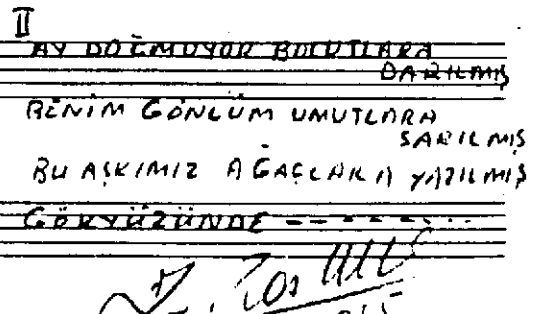 II
AY DOĞMUYOR BULUTLARA
DARILMIŞ
BENİM GÖNLÜM UMUTLARA
SARILMIŞ
BU AŞKIMIZ AĞAÇLARA YAZILMIŞ
GÖKYÜZÜNDE -- - - - - . .